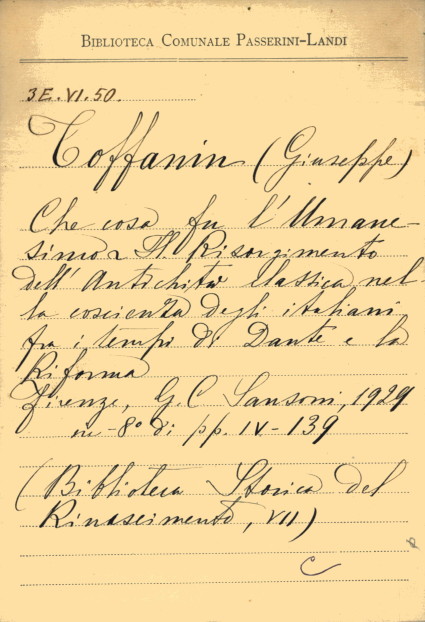 BIBLIOTECA COMUNALE PASSERINI-LANDI
3E.VI.50.
Toffanin (Giuseppe)
Che cosa fu l'Umane-
simo Il Risorgimento
dell'Antichità classica nel-
la coscienza degli italiani
fra i tempi di Dante e la
Riforma
Firenze, G.C Sansoni, 1929
in-8° di pp. IV-139
(Biblioteca Storica del
Rinascimento, VII)
C